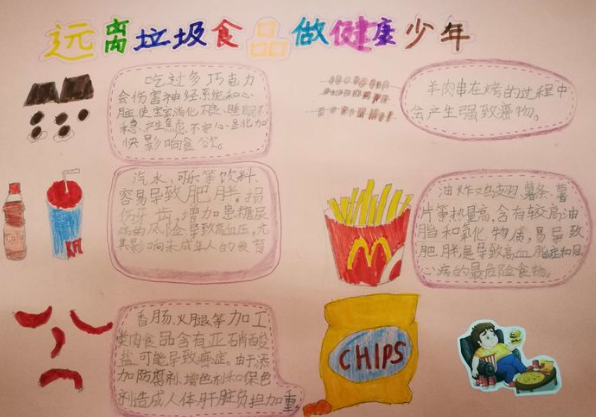 远离垃圾食品做健康少年
吃过多巧克力
会伤害神经系统和心
快影响食欲。
羊肉串在烤的过程中
会产生强致癌物。
汽水、可乐等饮料,
容易导致肥胖,损
伤牙齿,增加患糖尿
病的风险导致高血压,尤
其影响未成年人的发育
油炸鸡翅、薯条、薯
片等热量高,含有较高油
脂和氧化物质,易导致
肥胖是导致高血脂症和冠
心病的最危险食物。
香肠、火腿等加工
类肉食品含有亚硝酸
盐可能导致癌症。由于添
加防腐剂、增色剂和保色
剂造成人体肝脏负担加重
CHIPS